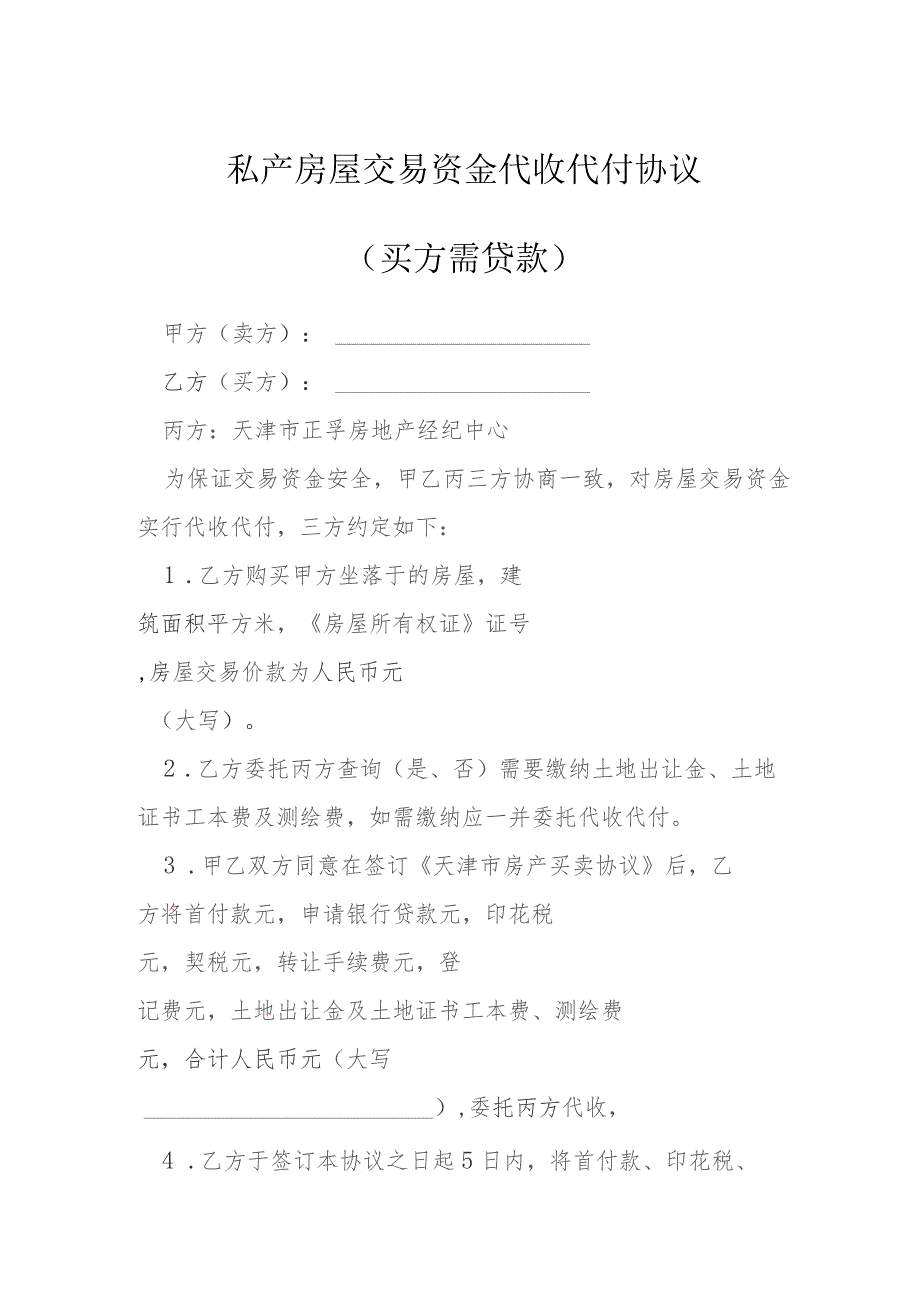 私产房屋交易资金代收代付协议
（买方需贷款）
甲方（卖方）：______________________
乙方（买方）：______________________
丙方：天津市正孚房地产经纪中心
为保证交易资金安全，甲乙丙三方协商一致，对房屋交易资金
实行代收代付，三方约定如下：
1.乙方购买甲方坐落于的房屋，建
筑面积平方米，《房屋所有权证》证号
,房屋交易价款为人民币元
（大写）。
2.乙方委托丙方查询（是、否）需要缴纳土地出让金、土地
证书工本费及测绘费，如需缴纳应一并委托代收代付。
3.甲乙双方同意在签订《天津市房产买卖协议》后，乙
方将首付款元，申请银行贷款元，印花税
元，契税元，转让手续费元，登
记费元，土地出让金及土地证书工本费、测绘费
元，合计人民币元（大写
_________________________）,委托丙方代收，
4.乙方于签订本协议之日起5日内，将首付款、印花税、